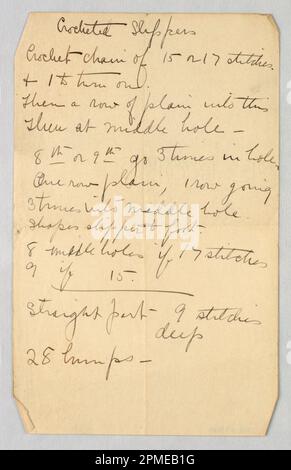 Crocheted Slippers
Crochet chain of 15 or 17 stitches.
& 1 to turn on.
Then a row of plain into this
Then at middle hole -
8th or 9th go 3 times in hole.
One row plain, 1 row going
3 times into middle hole.
Shapes slipper to foot
8 middle holes if 17 stitches
9 if 15.
Straight part 9 stitches
deep
28 humps -
alamy
Image ID: 2PMEB1G
www.alamy.com